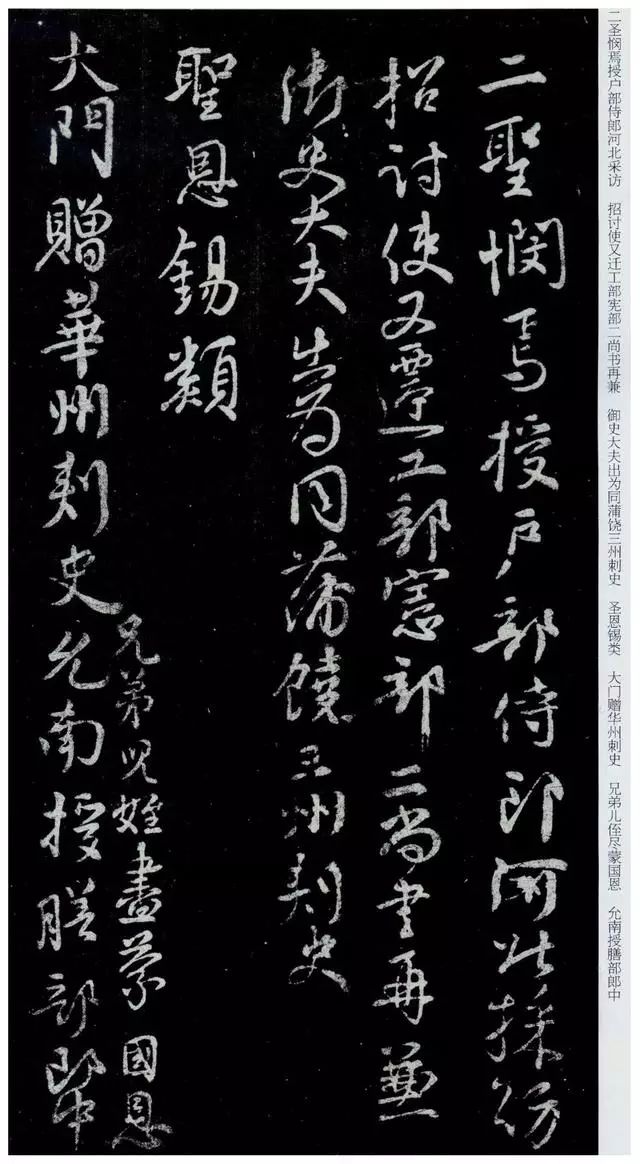 二聖憫焉授户部侍郎河北採访
招討使又遷工部憲部二尚書再兼
御史大夫出为同蒲饒三州刺史
聖恩錫類
大門贈華州刺史允南授膳部郎中
兄弟児姪盡蒙國恩
二圣悯焉授户部侍郎河北采访 招讨使又迁工部宪部二尚书再兼 御史大夫出为同蒲饶三州刺史 圣恩锡类 大门赠华州刺史 兄弟儿侄尽蒙国恩 允南授膳部郎中